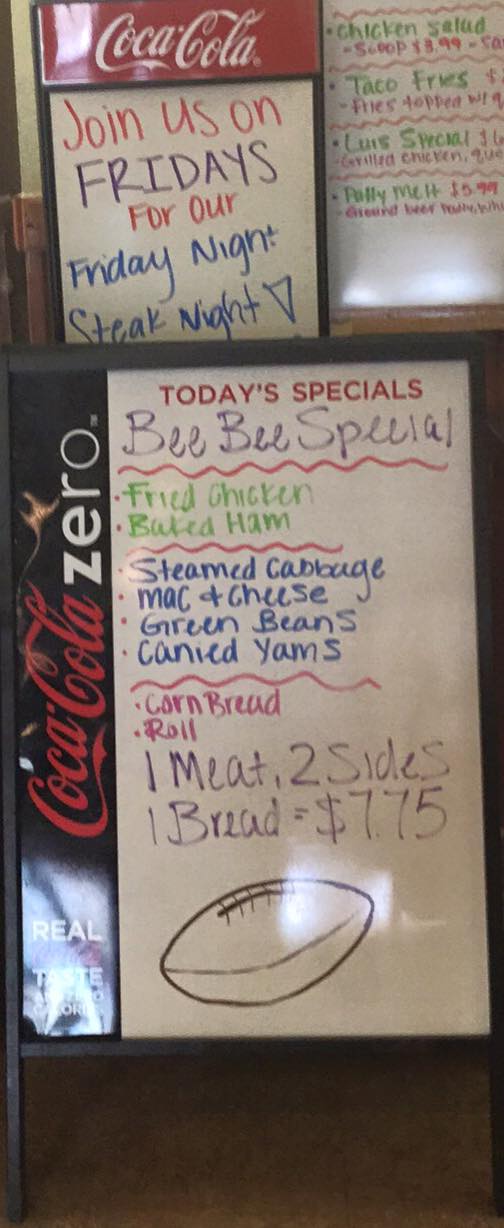 Coca-Cola
Join us on
FRIDAYS
For our
Friday Night
Steak Night
• Chicken Salad
- Scoop $3.99 -
• Taco Fries
- Fries topped w/
• Luis Special
- Grilled chicken,
• Patty Melt $5.99
- Ground beef patty,
Coca-Cola zero
REAL
TASTE
TODAY'S SPECIALS
Bee Bee Special
• Fried Chicken
• Baked Ham
• Steamed Cabbage
• Mac & Cheese
• Green Beans
• Canied Yams
• Corn Bread
• Roll
1 Meat, 2 Sides
1 Bread = $7.75